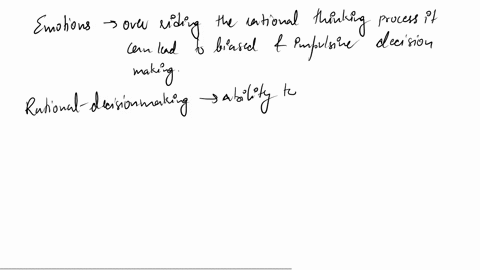 Emotions → over riding the rational thinking process it
can lead to biased & impulsive decision
making.
Rational-decisionmaking → ability to